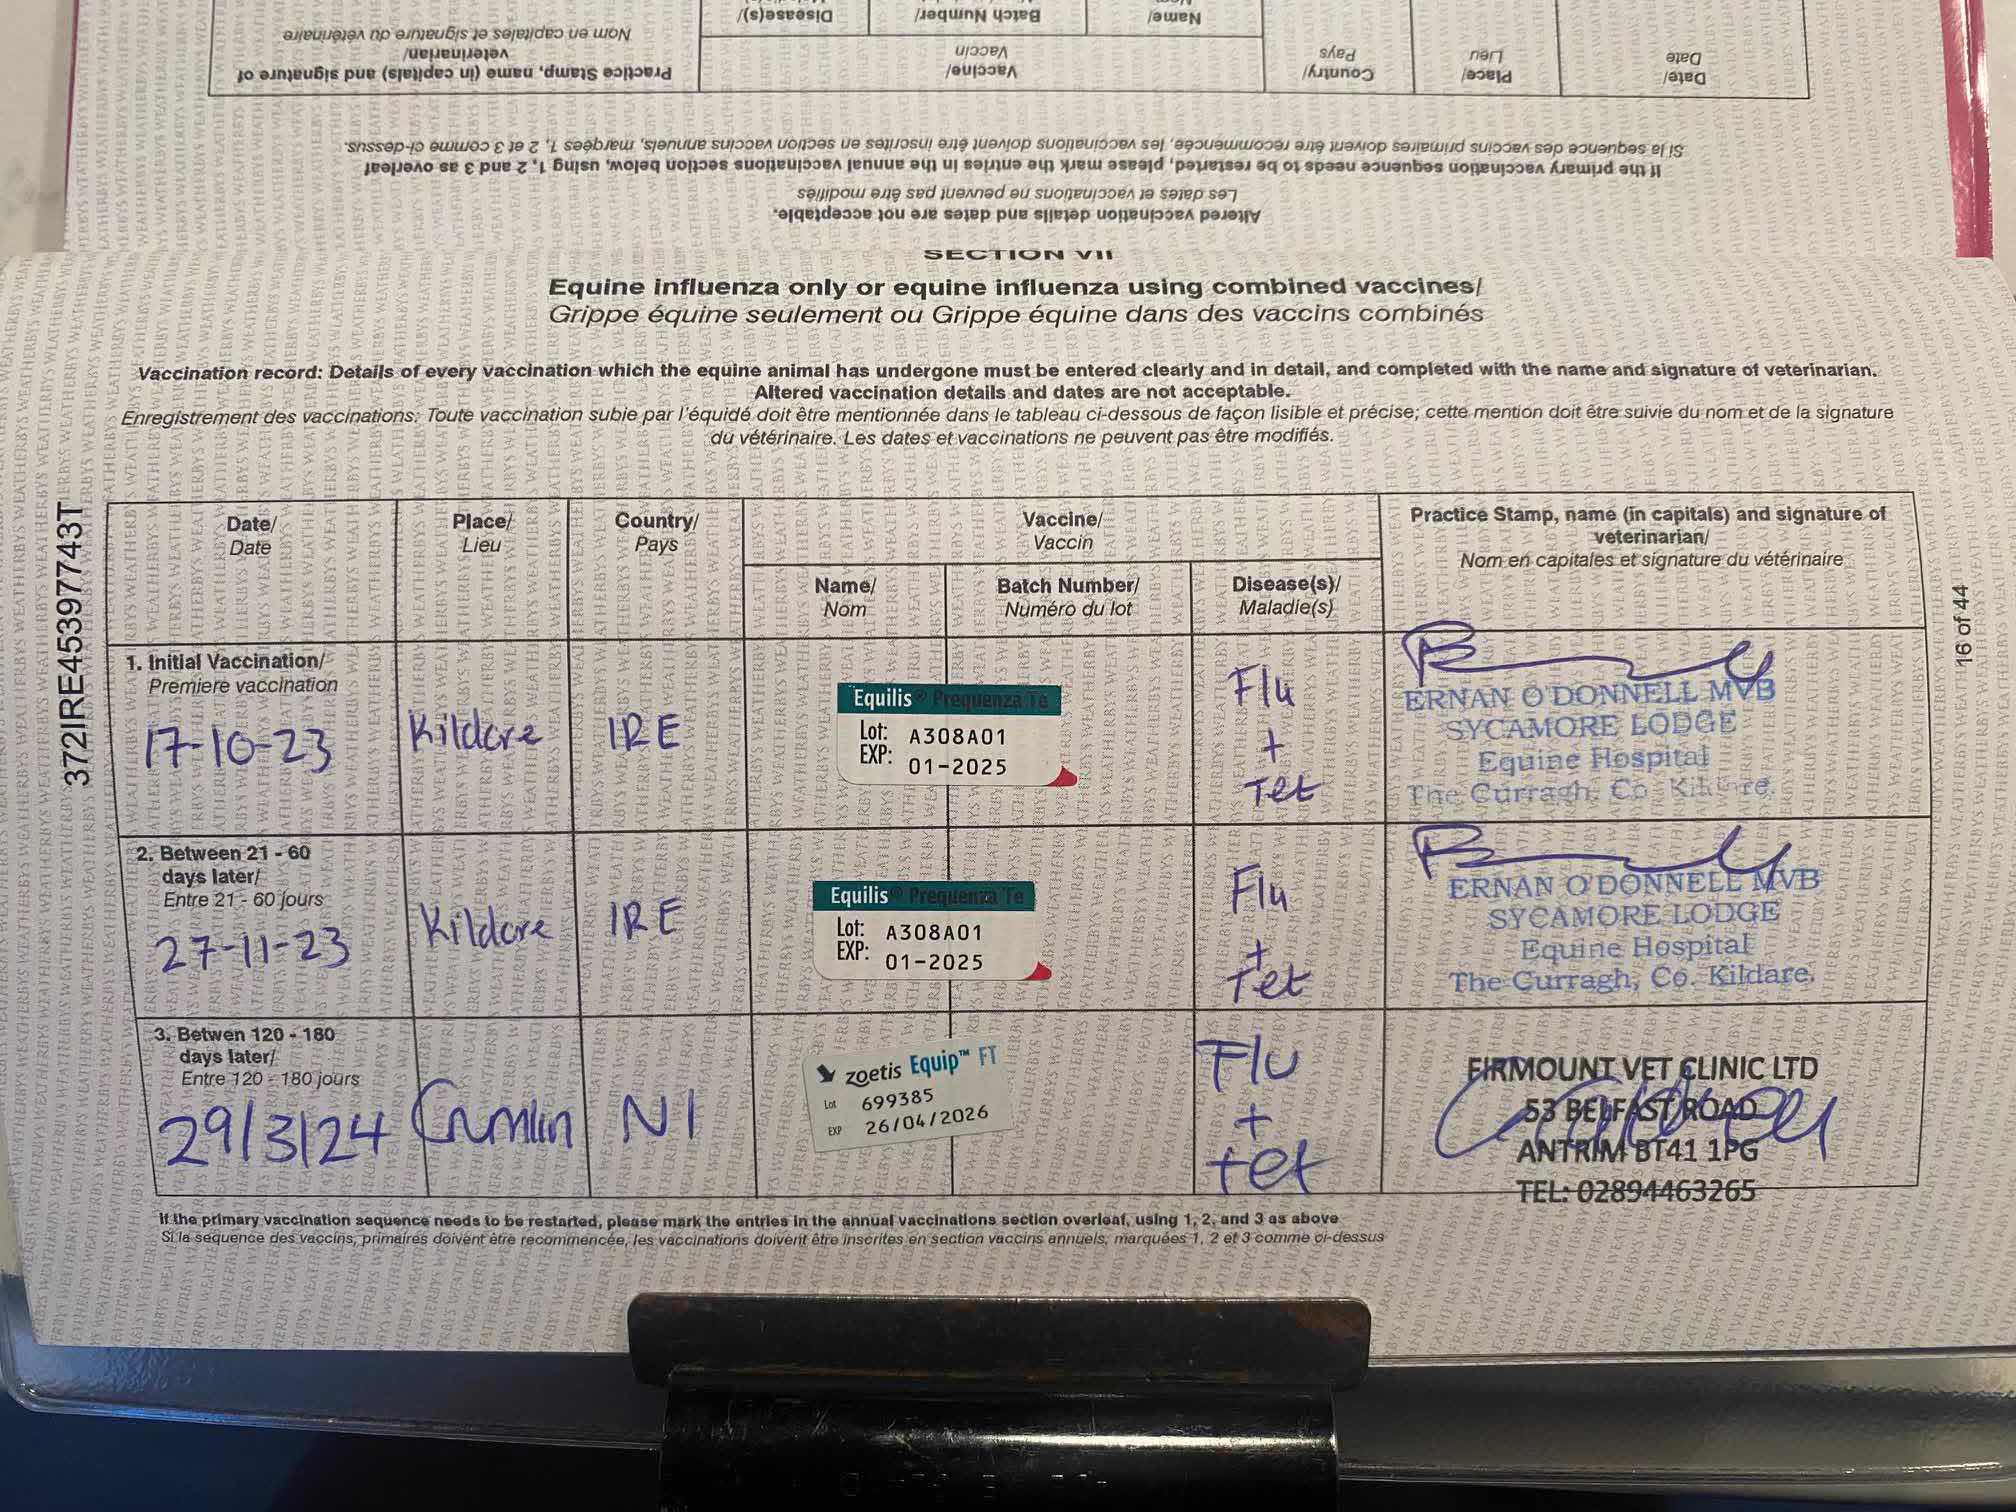 Date/
Date
Place/
Lieu
Country/
Pays
Vaccine/
Vaccin
Name/
Batch Number/
Disease(s)/
Practice Stamp, name (in capitals) and signature of
veterinarian/
Nom en capitales et signature du vétérinaire
If the primary vaccination sequence needs to be restarted, please mark the entries in the annual vaccinations section below, using 1, 2 and 3 as overleaf
Si la sequence des vaccins primaires doivent être recommencée, les vaccinations doivent être inscrites en section vaccins annuels, marqées 1, 2 et 3 comme ci-dessus.
Altered vaccination details and dates are not acceptable.
Les dates et vaccinations ne peuvent pas être modifiés
SECTION VII
Equine influenza only or equine influenza using combined vaccines/
Grippe équine seulement ou Grippe équine dans des vaccins combinés
Vaccination record: Details of every vaccination which the equine animal has undergone must be entered clearly and in detail, and completed with the name and signature of veterinarian.
Altered vaccination details and dates are not acceptable.
Enregistrement des vaccinations: Toute vaccination subie par l'équidé doit être mentionnée dans le tableau ci-dessous de façon lisible et précise; cette mention doit être suivie du nom et de la signature
du vétérinaire. Les dates et vaccinations ne peuvent pas être modifiés.
372IRE45397743T
16 of 44
Date/
Date
Place/
Lieu
Country/
Pays
Vaccine/
Vaccin
Name/
Nom
Batch Number/
Numéro du lot
Disease(s)/
Maladie(s)
Practice Stamp, name (in capitals) and signature of
veterinarian/
Nom en capitales et signature du vétérinaire
1. Initial Vaccination/
Premiere vaccination
17-10-23
Kildare
IRE
Equilis® Prequenza Te
Lot: A308A01
EXP: 01-2025
Flu
+
Tet
ERNAN O'DONNELL MVB
SYCAMORE LODGE
Equine Hospital
The Curragh, Co. Kildare.
2. Between 21 - 60
days later/
Entre 21 - 60 jours
27-11-23
Kildare
IRE
Equilis® Prequenza Te
Lot: A308A01
EXP: 01-2025
Flu
+
Tet
ERNAN O'DONNELL MVB
SYCAMORE LODGE
Equine Hospital
The Curragh, Co. Kildare.
3. Betwen 120 - 180
days later/
Entre 120 - 180 jours
29/3/24
Crumlin
NI
zoetis Equip™ FT
Lot 699385
EXP 26/04/2026
Flu
+
tet
FIRMOUNT VET CLINIC LTD
53 BELFAST ROAD
ANTRIM BT41 1PG
TEL: 02894463265
If the primary vaccination sequence needs to be restarted, please mark the entries in the annual vaccinations section overleaf, using 1, 2, and 3 as above
Si la sequence des vaccins, primaires doivent être recommencée, les vaccinations doivent être inscrites en section vaccins annuels, marquées 1, 2 et 3 comme ci-dessus